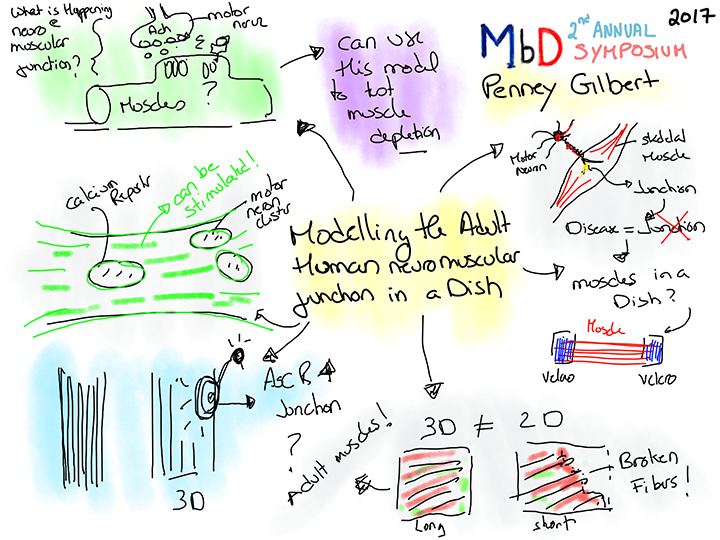 What is Happening
neuro e
muscular
junction?
Ach
motor
nerve
Muscles ?
can use
this model
to tot
muscle
depletion
MbD 2nd ANNUAL
SYMPOSIUM
2017
Penney Gilbert
Motor
neuron
skeletal
Muscle
Junction
Disease = Junction
muscles in a
Dish?
Muscle
Velcro
velcro
calcium
Reporter
can be
stimulated!
motor
neron
cluster
Modelling the Adult
Human neuromuscular
junction in a Dish
AScR
Junction
?
3D
Adult muscles!
3D ≠ 2D
Long
short
Broken
Fibus!